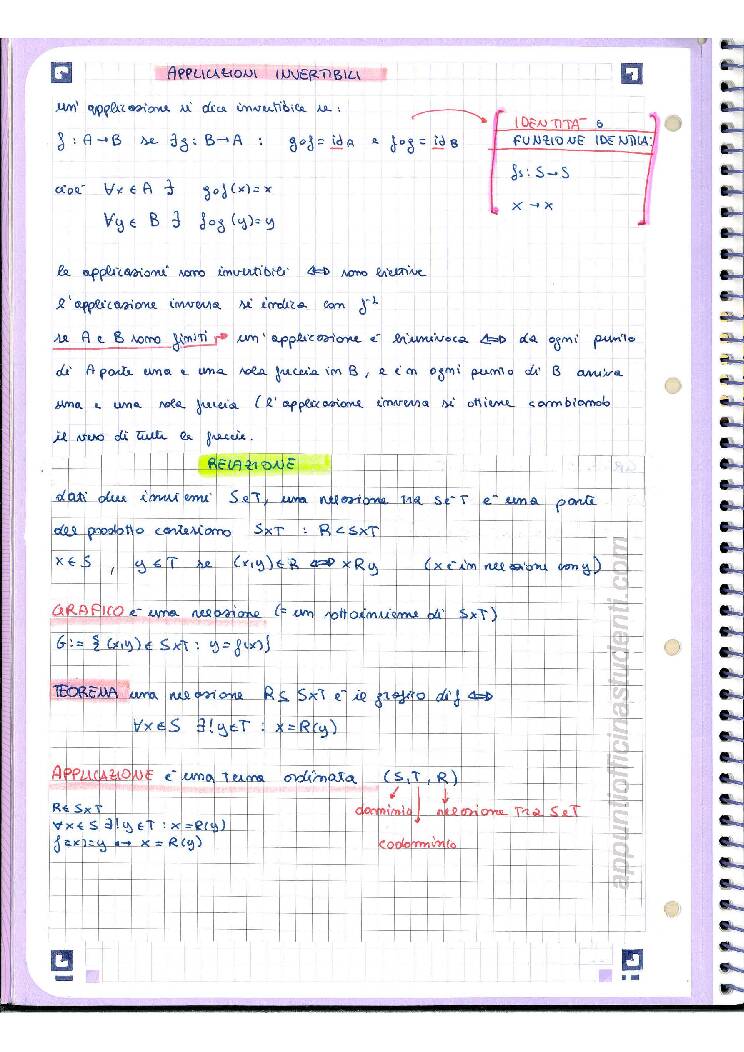 APPLICAZIONI INVERTIBILI
un'applicazione si dice invertibile se:
f : A→B se ∃g : B→A : gof = id A e fog = id B
IDENTITÀ o
FUNZIONE IDENTICA:
fs : S→S
x → x
cioè ∀x ∈ A ∃ gof(x)=x
∀y ∈ B ∃ fog(y)=y
le applicazioni sono invertibili ⇔ sono biettive
l'applicazione inversa si indica con f⁻¹
se A e B sono finiti → un'applicazione è biunivoca ⇔ da ogni punto
di A parte una e una sola freccia in B, e in ogni punto di B arriva
una e una sola freccia (l'applicazione inversa si ottiene cambiando
il verso di tutte le frecce.
RELAZIONE
dati due insiemi S e T, una relazione tra S e T è una parte
del prodotto cartesiano SxT : R<SxT
x ∈ S , y ∈ T se (x,y) ∈ R ⇔ xRy (x è in relazione con y)
GRAFICO è una relazione (= un sottoinsieme di SxT)
G:= { (x,y) ∈ SxT : y=f(x)}
TEOREMA una relazione R⊆ SxT è il grafico di f ⇔
∀x ∈ S ∃! y ∈ T : x=R(y)
APPLICAZIONE è una terna ordinata (S,T,R)
dominio relazione tra S e T
codominio
R ∈ SxT
∀x ∈ S ∃! y ∈ T : x=R(y)
f(x)=y ↔ x = R(y)
appuntiofficinastudenti.com